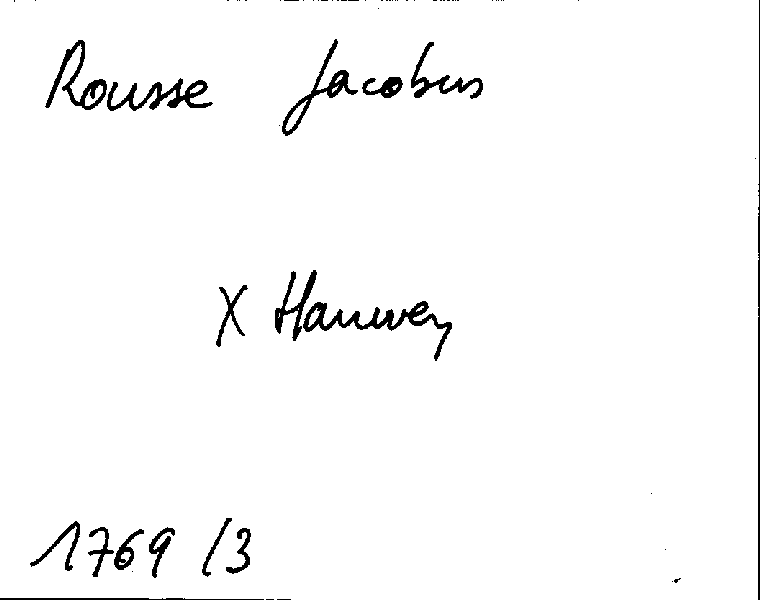 Rousse Jacobus
X Hauwey
1769 /3